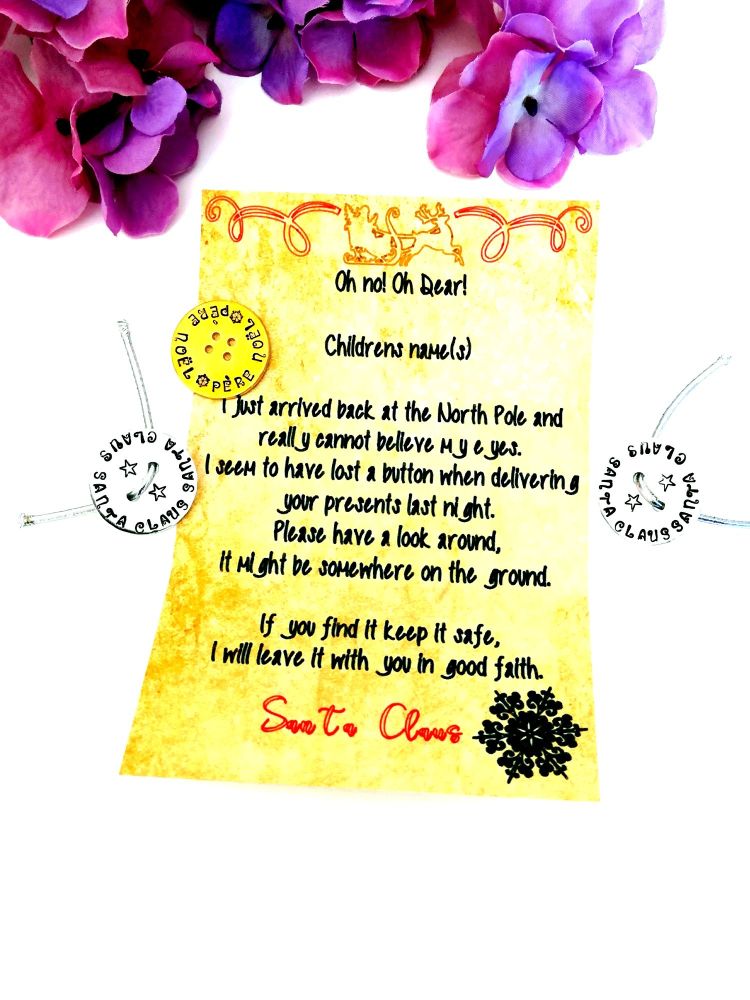 Oh no! Oh Dear!
Childrens name(s)
PÈRE NOËL PÈRE NOËL
I just arrived back at the North Pole and
really cannot believe my eyes.
I seem to have lost a button when delivering
your presents last night.
SANTA CLAUS SANTA CLAUS
SANTA CLAUS SANTA CLAUS
Please have a look around,
it might be somewhere on the ground.
If you find it keep it safe,
I will leave it with you in good faith.
Santa Claus